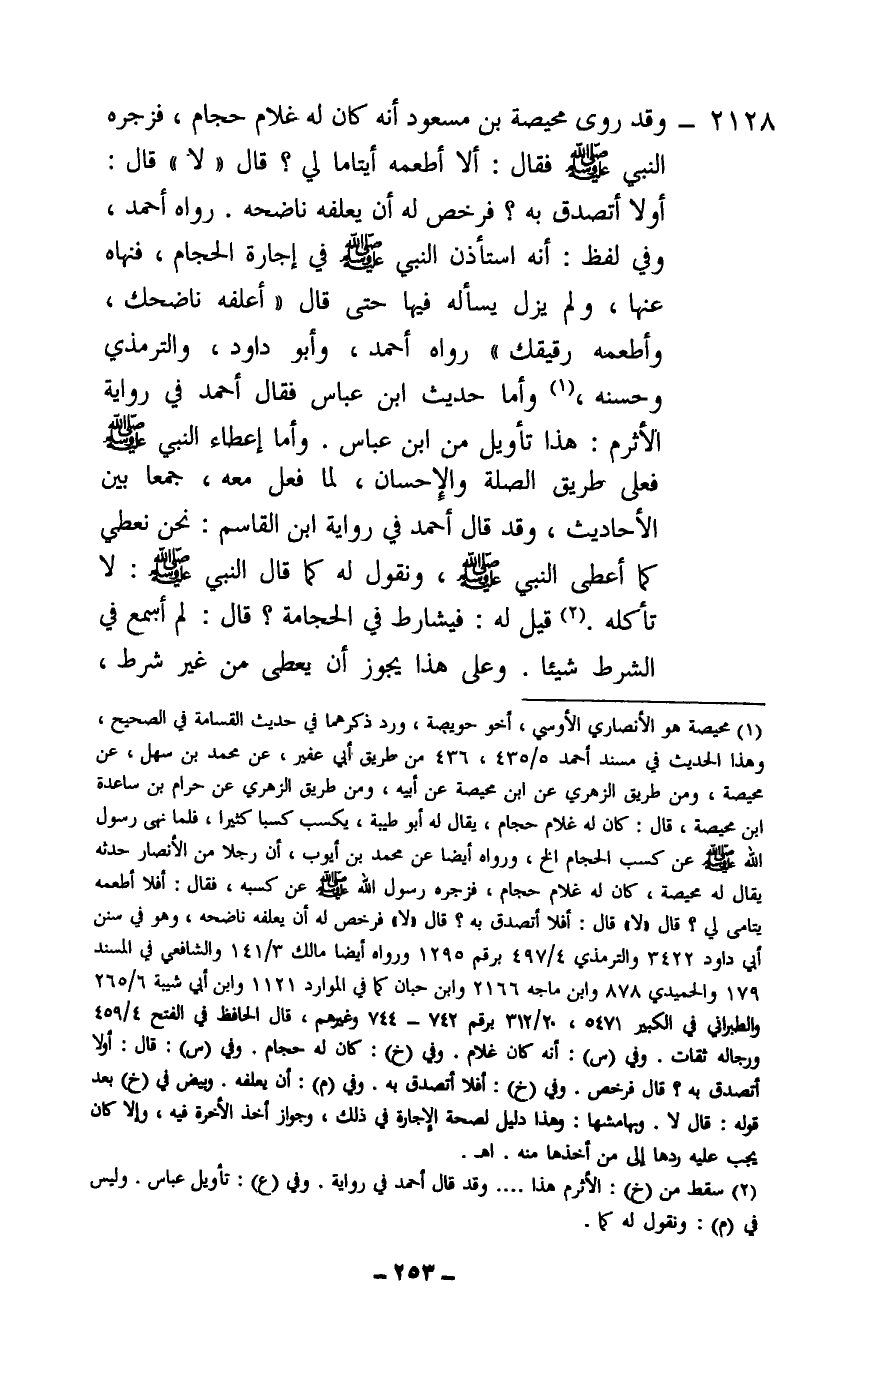 ٢١٢٨ ـ وقد روى محيصة بن مسعود أنه كان له غلام حجام ، فزجره
النبي ﷺ فقال : ألا أطعمه أيتاما لي ؟ قال « لا » قال :
أولا أتصدق به ؟ فرخص له أن يعلفه ناضحه . رواه أحمد ،
وفي لفظ : أنه استأذن النبي ﷺ في إجارة الحجام ، فنهاه
عنها ، ولم يزل يسأله فيها حتى قال « أعلفه ناضحك ،
وأطعمه رقيقك » رواه أحمد ، وأبو داود ، والترمذي
وحسنه ،(١) وأما حديث ابن عباس فقال أحمد في رواية
الأثرم : هذا تأويل من ابن عباس . وأما إعطاء النبي ﷺ
فعلى طريق الصلة والإحسان ، لما فعل معه ، جمعا بين
الأحاديث ، وقد قال أحمد في رواية ابن القاسم : نحن نعطي
كما أعطى النبي ﷺ ، ونقول له كما قال النبي ﷺ : لا
تأكله .(٢) قيل له : فيشارط في الحجامة ؟ قال : لم أسمع في
الشرط شيئا . وعلى هذا يجوز أن يعطى من غير شرط ،
(١) محيصة هو الأنصاري الأوسي ، أخو حويصة ، ورد ذكرهما في حديث القسامة في الصحيح ،
وهذا الحديث في مسند أحمد ٤٣٥/٥ ، ٤٣٦ من طريق أبي عفير ، عن محمد بن سهل ، عن
محيصة ، ومن طريق الزهري عن ابن محيصة عن أبيه ، ومن طريق الزهري عن حرام بن ساعدة
ابن محيصة ، قال : كان له غلام حجام ، يقال له أبو طيبة ، يكسب كسبا كثيرا ، فلما نهى رسول
الله ﷺ عن كسب الحجام الخ ، ورواه أيضا عن محمد بن أيوب ، أن رجلا من الأنصار حدثه
يقال له محيصة ، كان له غلام حجام ، فزجره رسول الله ﷺ عن كسبه ، فقال : أفلا أطعمه
يتامى لي ؟ قال «لا» قال : أفلا أتصدق به ؟ قال «لا» فرخص له أن يعلفه ناضحه ، وهو في سنن
أبي داود ٣٤٢٢ والترمذي ٤٩٧/٤ برقم ١٢٩٥ ورواه أيضا مالك ١٤١/٣ والشافعي في المسند
١٧٩ والحميدي ٨٧٨ وابن ماجه ٢١٦٦ وابن حبان كما في الموارد ١١٢١ وابن أبي شيبة ٢٦٥/٦
والطبراني في الكبير ٥٤٧١ ، ٣١٢/٢٠ برقم ٧٤٢ ـ ٧٤٤ وغيرهم ، قال الحافظ في الفتح ٤٥٩/٤
ورجاله ثقات . وفي (س) : أنه كان غلام . وفي (خ) : كان له حجام . وفي (س) : قال : أولا
أتصدق به ؟ قال فرخص . وفي (خ) : أفلا أتصدق به . وفي (م) : أن يعلفه . وبيض في (خ) بعد
قوله : قال لا . وبهامشها : وهذا دليل لصحة الإجارة في ذلك ، وجواز أخذ الأخرة فيه ، وإلا كان
يجب عليه ردها إلى من أخذها منه . اهـ .
(٢) سقط من (خ) : الأثرم هذا .... وقد قال أحمد في رواية . وفي (ع) : تأويل عباس . وليس
في (م) : ونقول له كما .
ـ ٢٥٣ ـ